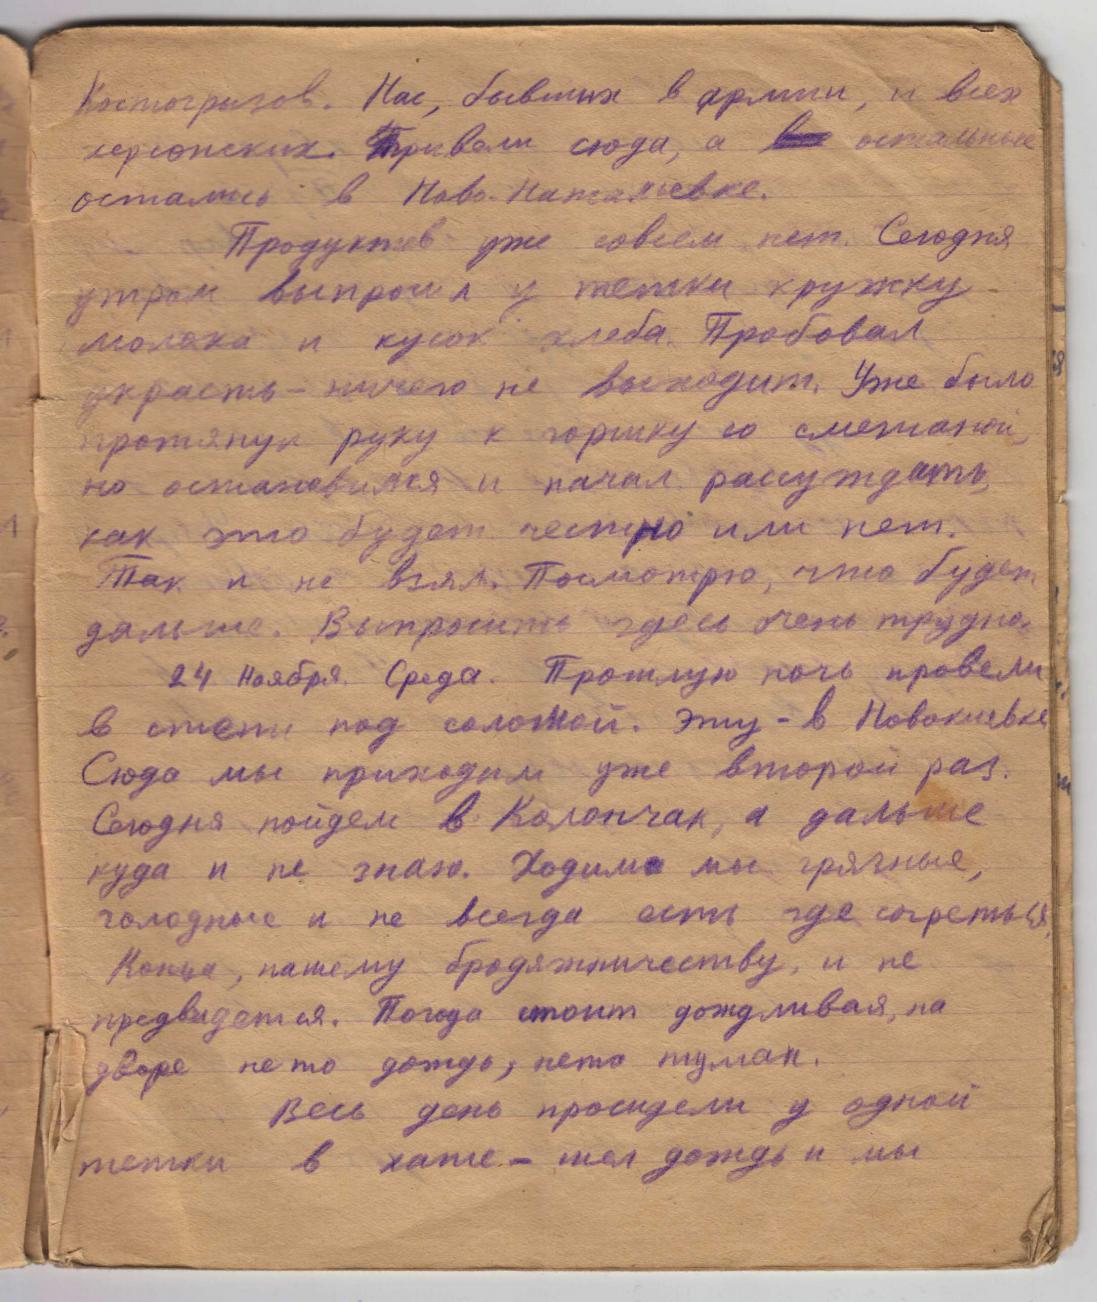 Костогрызов. Нас, бывших в армии, и всех
херсонских. Привели сюда, а остальные
остались в Ново-Натальевке.
Продуктов уже совсем нет. Сегодня
утром выпросил у тетки кружку
молока и кусок хлеба. Пробовал
украсть – ничего не выходит. Уже было
протянул руку к горшку со сметаной,
но остановился и начал рассуждать,
как это будет честно или нет.
Так и не взял. Посмотрю, что будет
дальше. Выпросить здесь очень трудно.
24 Ноября. Среда. Прошлую ночь провели
в степи под соломой. Эту – в Новокиевке
Сюда мы приходим уже второй раз.
Сегодня пойдем в Каланчак, а дальше
куда и не знаю. Ходим мы грязные,
голодные и не всегда есть где согреться.
Конца, нашему бродяжничеству, и не
предвидется. Погода стоит дождливая, на
дворе не то дождь, не то туман.
Весь день просидели у одной
тетки в хате – шел дождь и мы